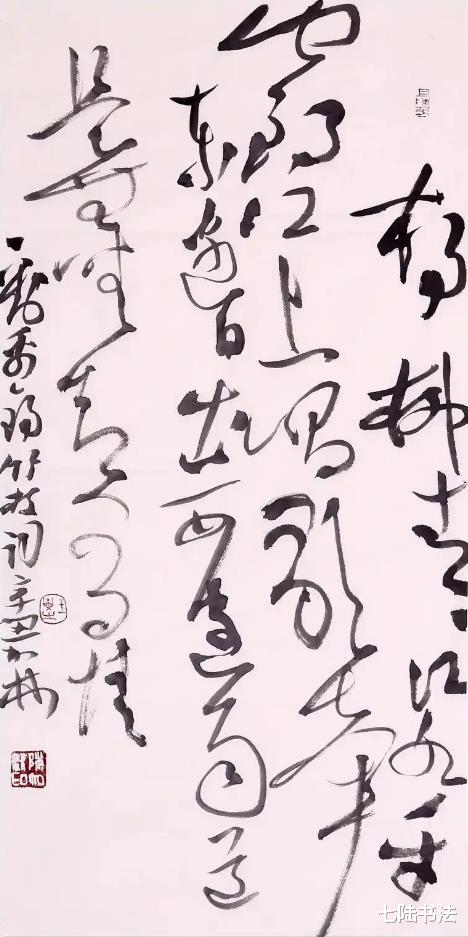 杨柳青青江水平
闻郎江上唱歌声
东边日出西边雨道
是无晴却有晴
刘禹锡竹枝词辛丑加林
七陆书法